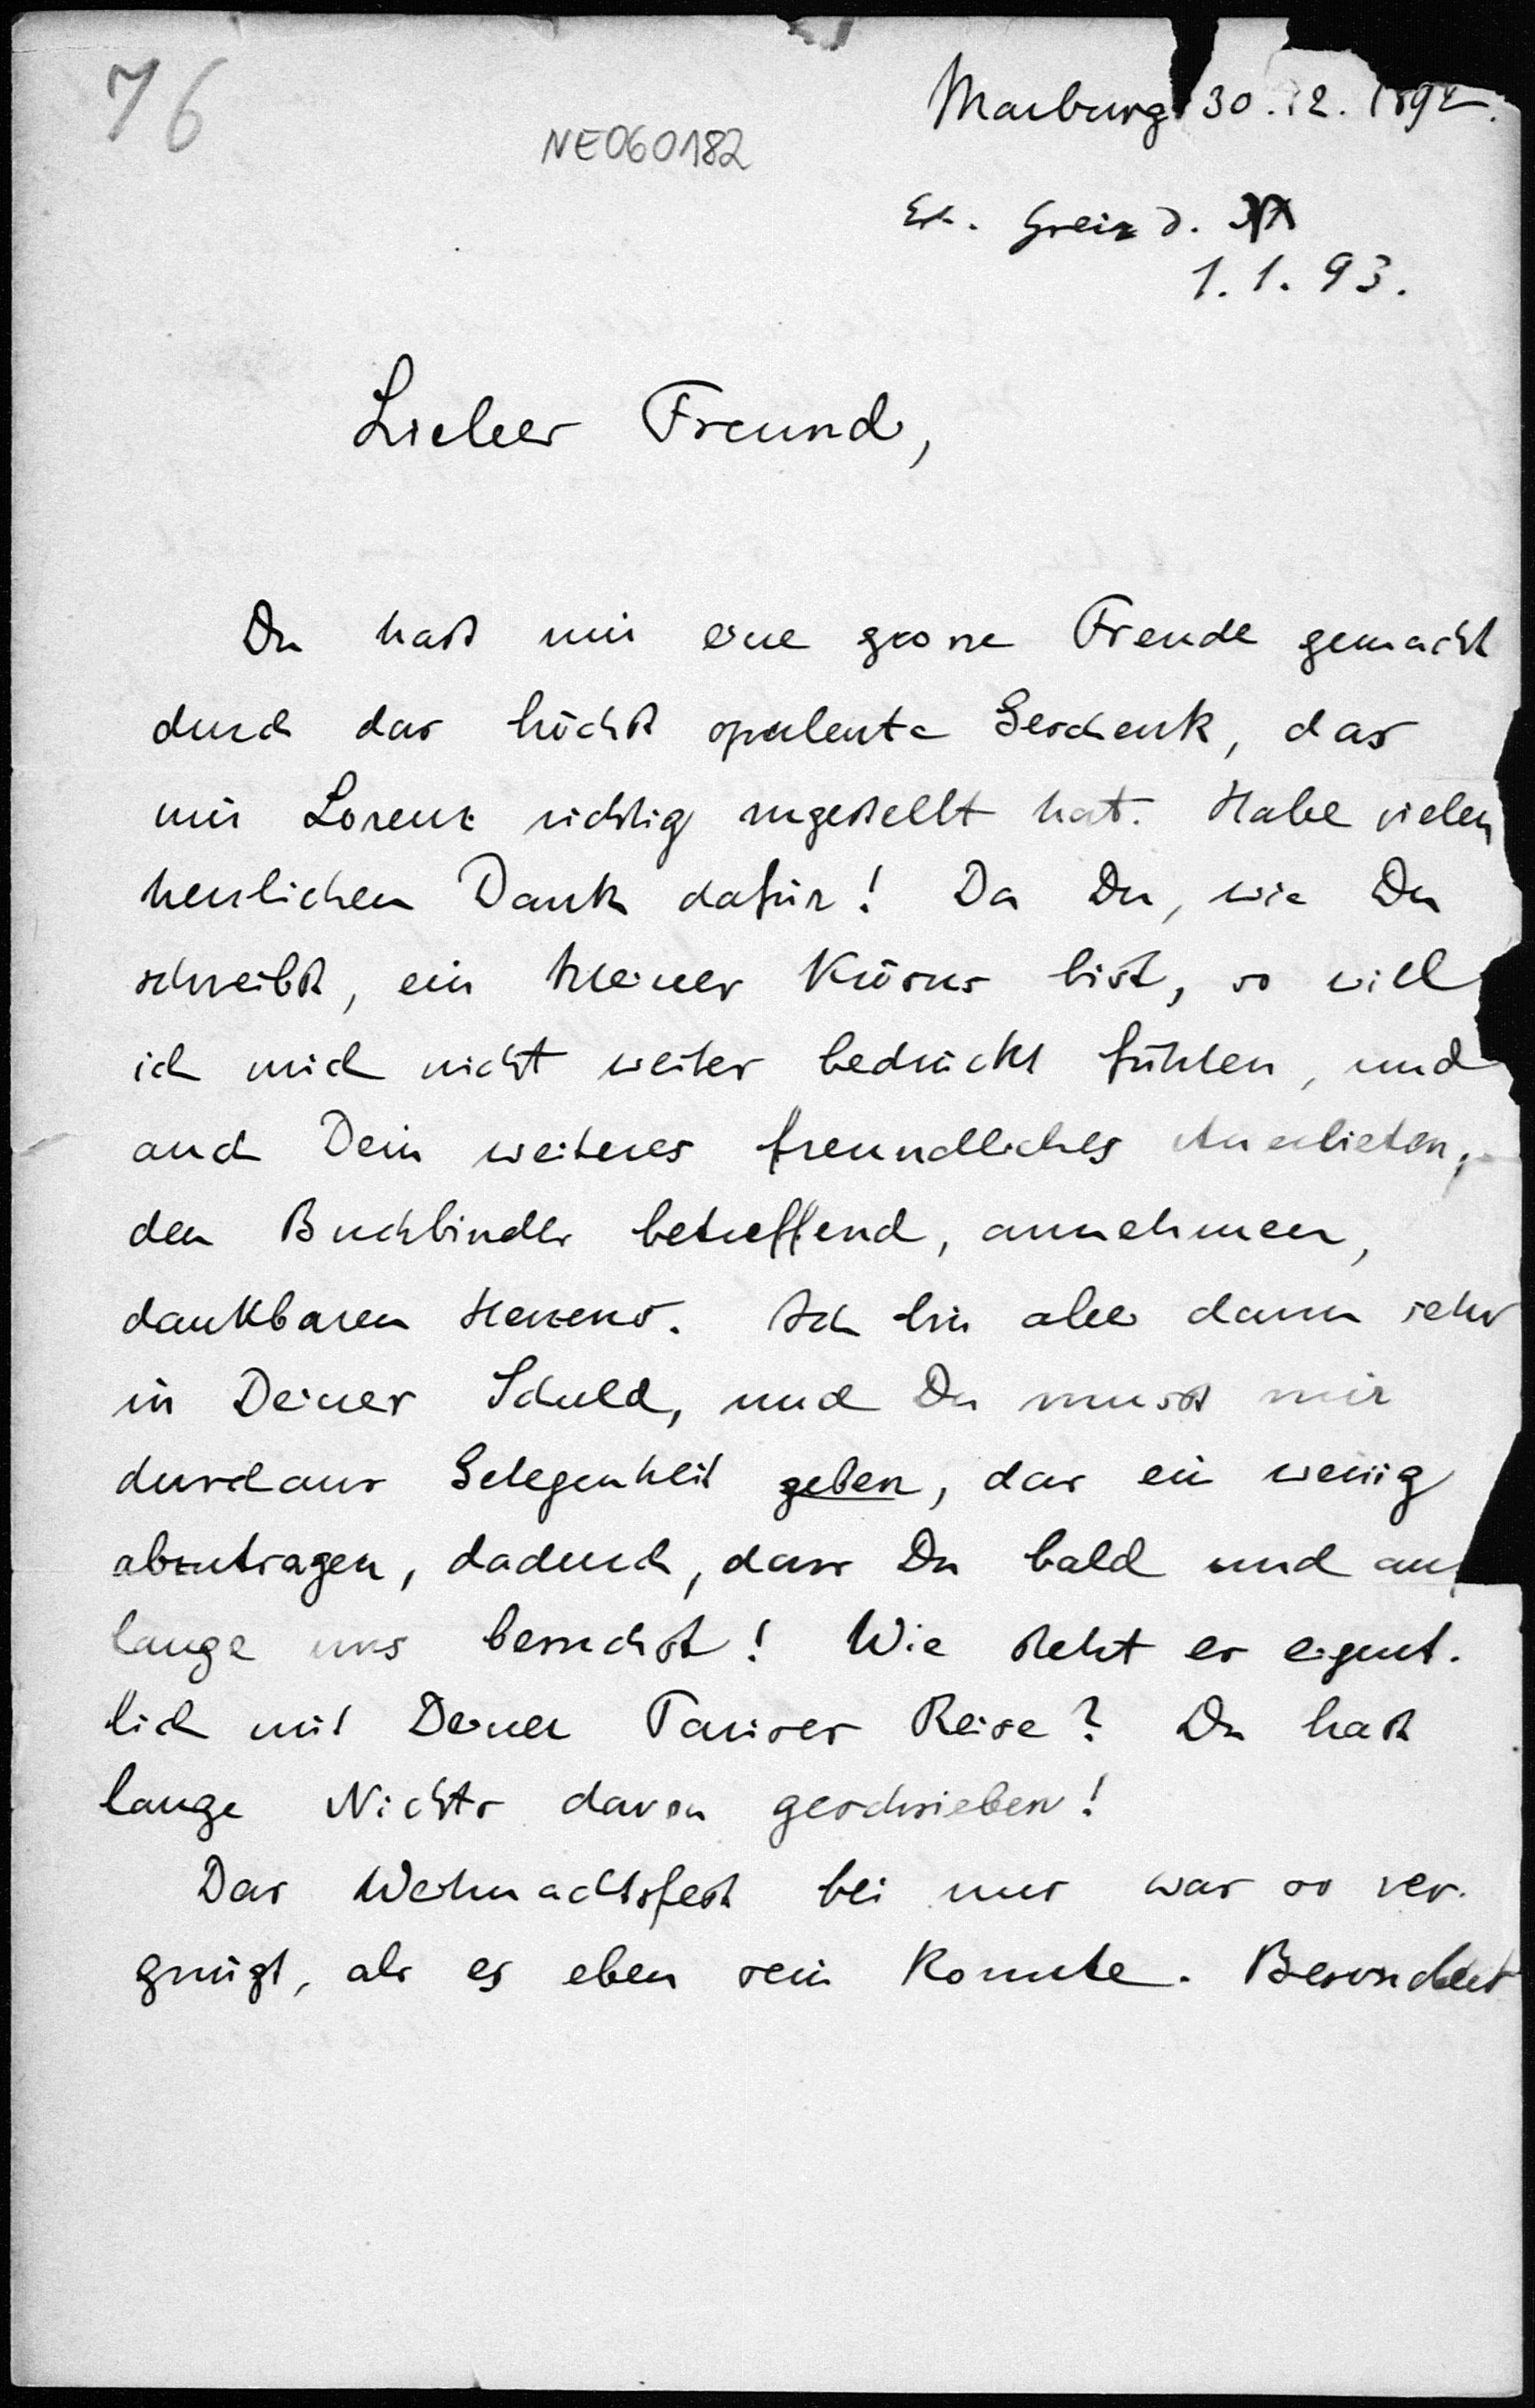 76
NE060182
Marburg 30.12.1892.
Erh. Greiz d.
1.1.93.
Lieber Freund,
Du hast mir eine grosse Freude gemacht
durch das höchst opulente Geschenk, das
mir Lorenz richtig zugestellt hat. Habe vielen
herzlichen Dank dafür! Da Du, wie Du
schreibst, ein kleiner Krösus bist, so will
ich mich nicht weiter bedrückt fühlen, und
auch Dein weiteres freundliches Anerbieten,
den Buchbinder betreffend, annehmen,
dankbaren Herzens. Ich bin aber dann sehr
in Deiner Schuld, und Du musst mir
durchaus Gelegenheit geben, das ein wenig
abzutragen, dadurch, dass Du bald und auf
lange uns besuchst! Wie steht es eigent-
lich mit Deiner Pariser Reise? Du hast
lange Nichts davon geschrieben!
Das Weihnachtsfest bei uns war so ver-
gnügt, als es eben sein konnte. Besonders